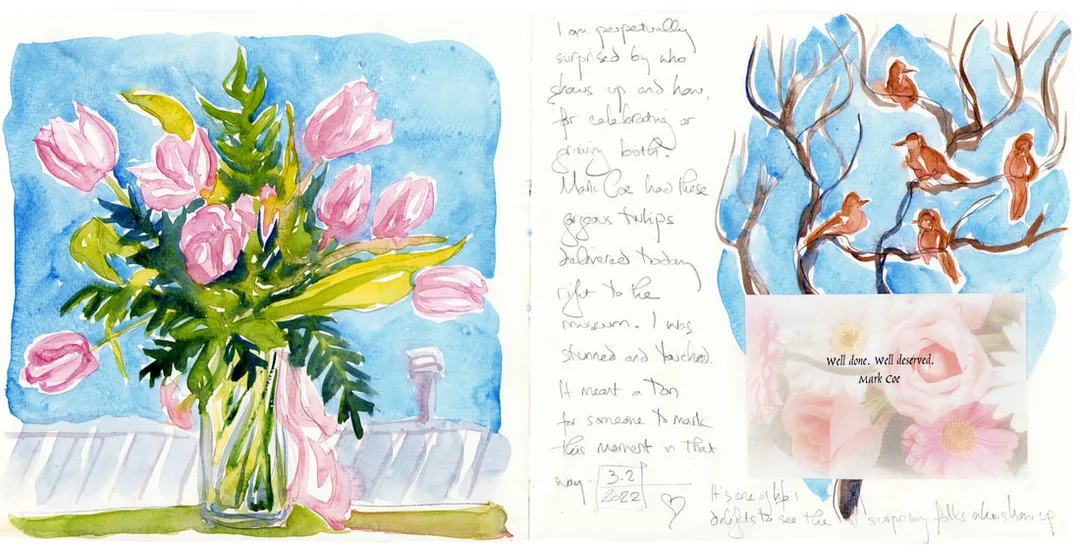 I am perpetually
surprised by who
shows up and how,
for celebrating or
grieving both.
Mark Coe had these
gorgeous tulips
delivered today
right to the
museum. I was
stunned and touched.
It meant a ton
for someone to mark
this moment in that
way.
3.2
2022
Well done. Well deserved.
Mark Coe
It's one of life's
delights to see the surprising folks who show up